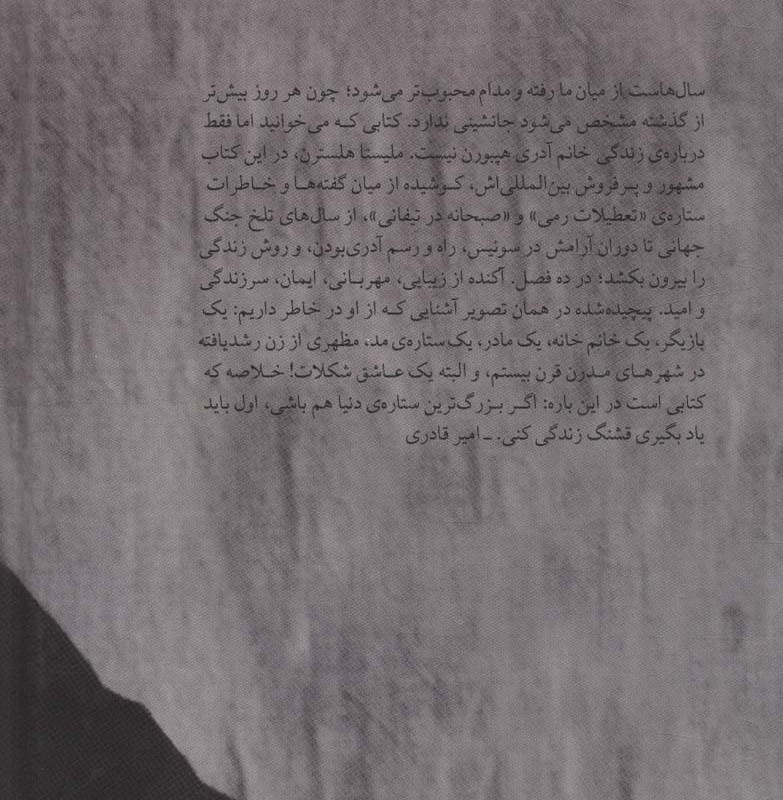 سال‌هاست از میان ما رفته و مدام محبوب‌تر می‌شود؛ چون هر روز بیش‌تر
از گذشته مشخص می‌شود جانشینی ندارد. کتابی که می‌خوانید اما فقط
درباره‌ی زندگی خانم آدری هپبورن نیست. ملیستا هلسترن، در این کتاب
مشهور و پرفروش بین‌المللی‌اش، کوشیده از میان گفته‌ها و خاطرات
ستاره‌ی «تعطیلات رمی» و «صبحانه در تیفانی»، از سال‌های تلخ جنگ
جهانی تا دوران آرامش در سوئیس، راه و رسم آدری‌بودن، و روش زندگی
را بیرون بکشد؛ در ده فصل. آکنده از زیبایی، مهربانی، ایمان، سرزندگی
و امید. پیچیده‌شده در همان تصویر آشنایی که از او در خاطر داریم: یک
بازیگر، یک خانم خانه، یک مادر، یک ستاره‌ی مد، مظهری از زن رشدیافته
در شهرهای مدرن قرن بیستم، و البته یک عاشق شکلات! خلاصه که
کتابی است در این باره: اگر بزرگ‌ترین ستاره‌ی دنیا هم باشی، اول باید
یاد بگیری قشنگ زندگی کنی. ـ امیر قادری